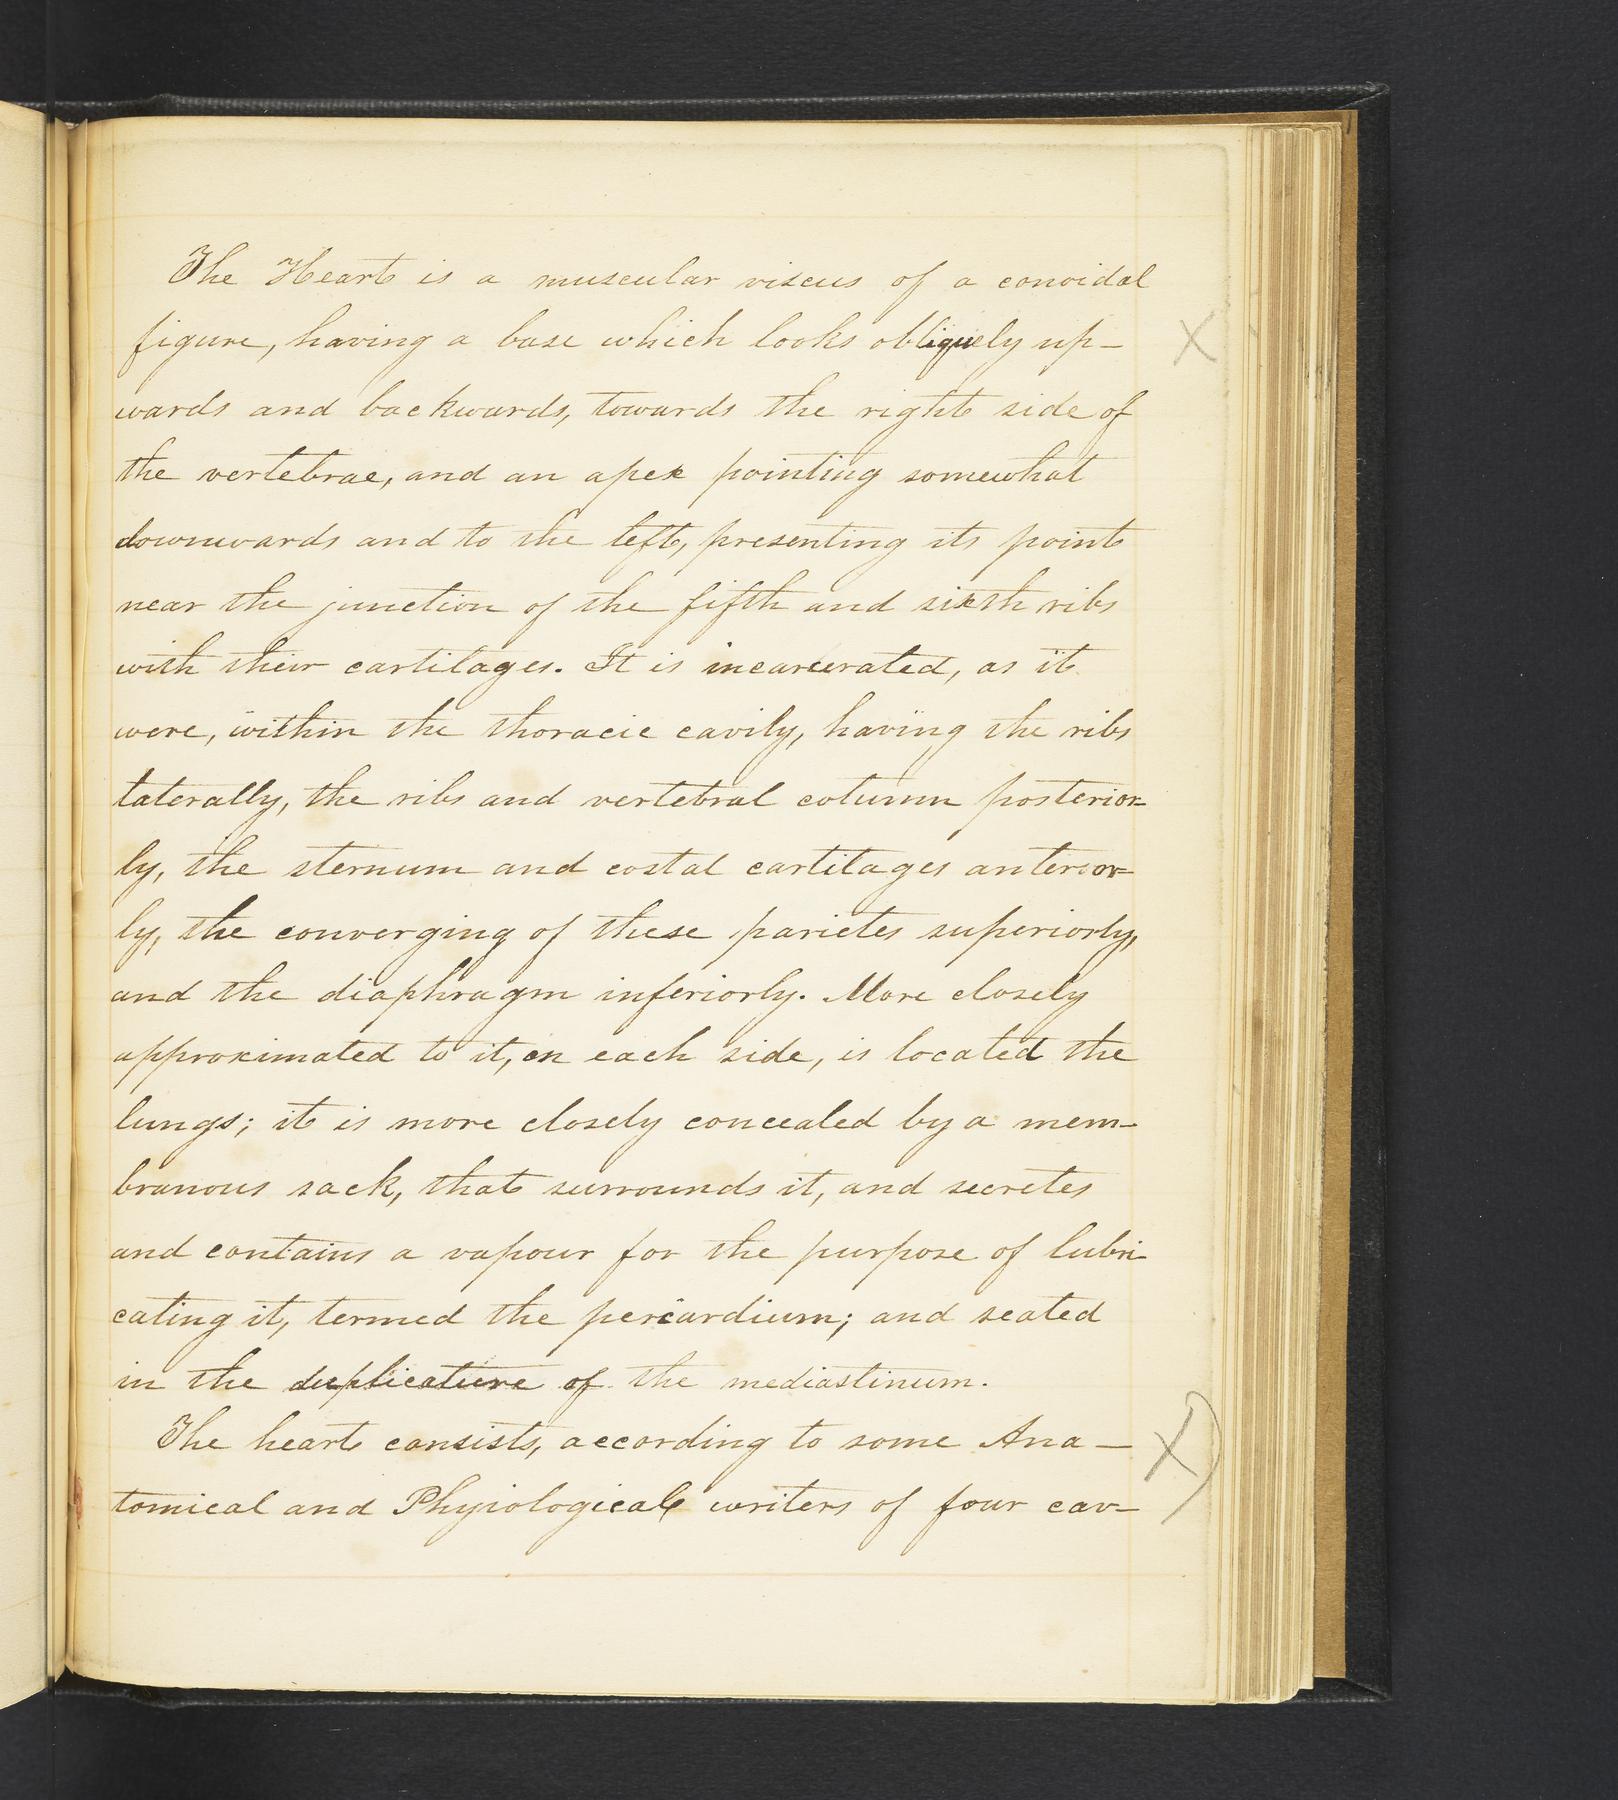 The Heart is a muscular viscus of a conoidal
figure, having a base which looks obliquely up-
wards and backwards, towards the right side of
the vertebrae, and an apex pointing somewhat
downwards and to the left, presenting its point
near the junction of the fifth and sixth ribs
with their cartilages. It is incarcerated, as it
were, within the thoracic cavity, having the ribs
laterally, the ribs and vertebral column posterior=
ly, the sternum and costal cartilages anterior=
ly, the converging of these parietes superiorly,
and the diaphragm inferiorly. More closely
approximated to it, on each side, is located the
lungs; it is more closely concealed by a mem-
branous sack, that surrounds it, and secretes
and contains a vapour for the purpose of lubri-
cating it, termed the pericardium; and seated
in the duplicature of the mediastinum.
The heart consists, according to some Ana-
tomical and Physiological writers of four cav-